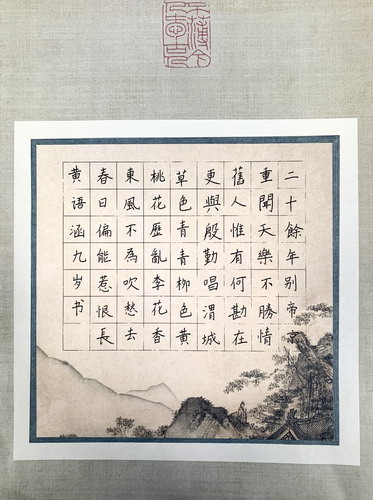 二十餘年别帝京
重聞天樂不勝情
舊人惟有何勘在
更與殷勤唱渭城
草色青青柳色黄
桃花歷亂李花香
東風不為吹愁去
春日偏能惹恨長
黄语涵九岁书